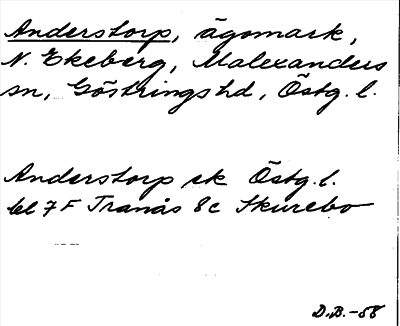 Anderstorp, ägomark,
N. Ekeberg, Malexanders
sn, Göstrings hd, Östg. l.
Anderstorp ek Östg. l.
bl 7 F Tranås 8c Skurebo
D.B. -58